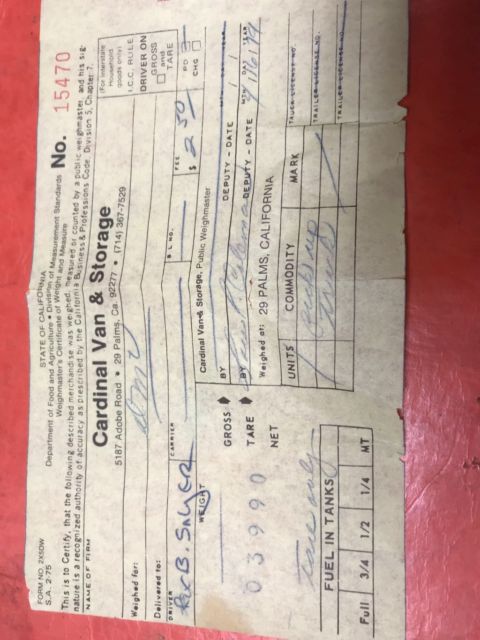 FORM NO. 2X5DW
S.A. 2-75
STATE OF CALIFORNIA
Department of Food and Agriculture • Division of Measurement Standards
Weighmaster's Certificate of Weight and Measure
No. 15470
This is to Certify, that the following described merchandise was weighed, measured or counted by a public weighmaster, and his sig-
nature is a recognized authority of accuracy as prescribed by the California Business & Professions Code, Division 5, Chapter 7.
NAME OF FIRM
Cardinal Van & Storage
5187 Adobe Road • 29 Palms, Ca. 92277 • (714) 367-7529
(For Interstate
Household
goods only)
I.C.C. RULE
DRIVER ON
GROSS
and
TARE
Weighed for: DMV
Delivered to:
CARRIER
B L NO.
FEE
$ 2 50
PD
CHG
DRIVER
Rex B. Salyer
WEIGHT
Cardinal Van & Storage, Public Weighmaster
GROSS
BY
DEPUTY - DATE
03990
TARE
BY
DEPUTY - DATE
NET
Weighed at: 29 PALMS, CALIFORNIA
UNITS
COMMODITY
MARK
TRUCK LICENSE NO.
TRAILER LICENSE NO.
TRAILER LICENSE NO.
1
Tare only
FUEL IN TANKS
Full
3/4
1/2
1/4
MT